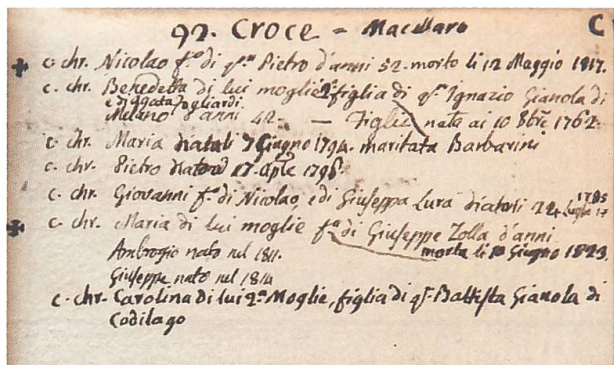 92. Croce = Macellaro C
c. chr. Nicolao f.o di q.m Pietro d'anni 52. morto li 12 Maggio 1817.
c. chr. Benedetta di lui moglie 2a figlia di q.m Ignazio Gianola di
e di Agata Fogliardi
Milano d'anni 42. — Figlie nata ai 10 8bre 1762.
c. chr. Maria di 7 Giugno 1794. maritata Barbarini
c. chr. Pietro 17. aple 1798
c. chr. Giovanni f.o di Nicolao, e di Giuseppa Lura 24 Luglio 1785
c. chr. Maria di lui moglie f.a di Giuseppe Zolla d'anni
Ambrogio nato nel 1811. morta li Giugno 1823.
Giuseppe nato nel 1814
c. chr. Carolina di lui 2a Moglie, figlia di q.m Battista Gianola di
Codilago